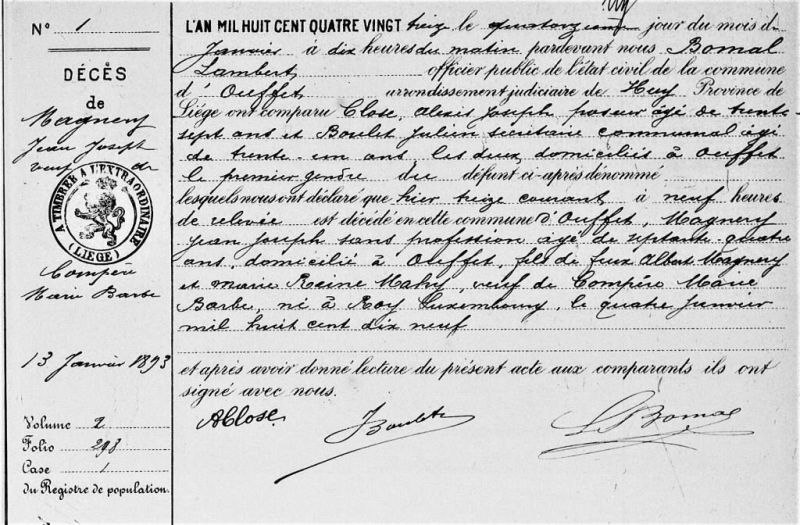 N° 1
DÉCÈS
de
Magnery
Jean Joseph
veuf de
A TIMBRER A L'EXTRAORDINAIRE
(LIEGE)
Compère
Marie Barbe
13 Janvier 1893
Volume 2
Folio 298
Case 1
du Registre de population.
L'AN MIL HUIT CENT QUATRE VINGT treize le quatorzième jour du mois d
Janvier à dix heures du matin pardevant nous Bomal
Lambert officier public de l'état civil de la commune
d'Ouffet arrondissement judiciaire de Huy Province de
Liége ont comparu Close, Alexis Joseph âgé de trente
sept ans et Boulet Julien secrétaire communal âgé
de trente-un ans, les deux domiciliés à Ouffet
le premier gendre du défunt ci-après dénommé
lesquels nous ont déclaré que hier treize courant à neuf heures
de relevée est décédé en cette commune d'Ouffet, Magnery
Jean Joseph sans profession âgé de septante quatre
ans, domicilié à Ouffet, fils de feux Albert Magnery
et Marie Reine Mahy, veuf de Compère Marie
Barbe, né à Roy Luxembourg, le quatre Janvier
mil huit cent dix neuf
et après avoir donné lecture du présent acte aux comparants ils ont
signé avec nous.
AClose
JBoulet
L Bomal